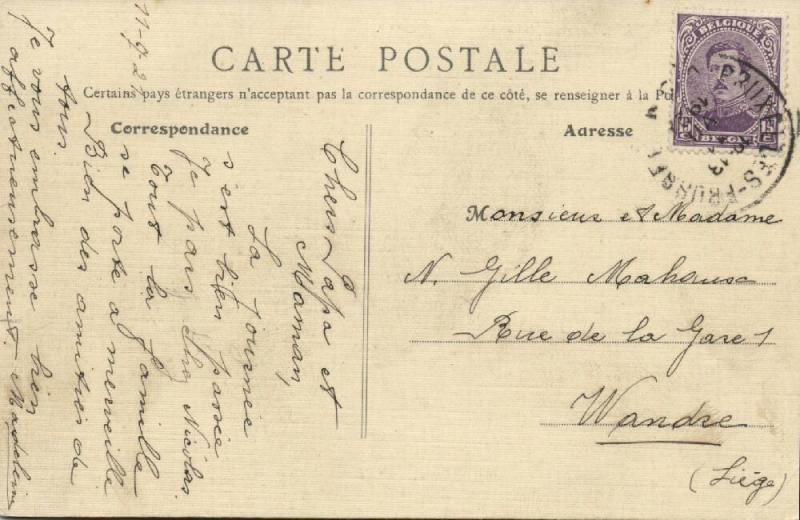 CARTE POSTALE
Certains pays étrangers n'acceptent pas la correspondance de ce côté, se renseigner à la
Correspondance
Adresse
BELGIQUE
BELGIE
Monsieur et Madame
N. Gille Mahaux
Rue de la Gare 1
Wandre
(Liége)
Chers Papa et
Maman,
La journée
s'est bien passée
Je pars chez Nicolas.
Tout la famille
se porte à merveille
Bien des amitiés de
tous.
Je vous embrasse bien
affectueusement. Madeleine